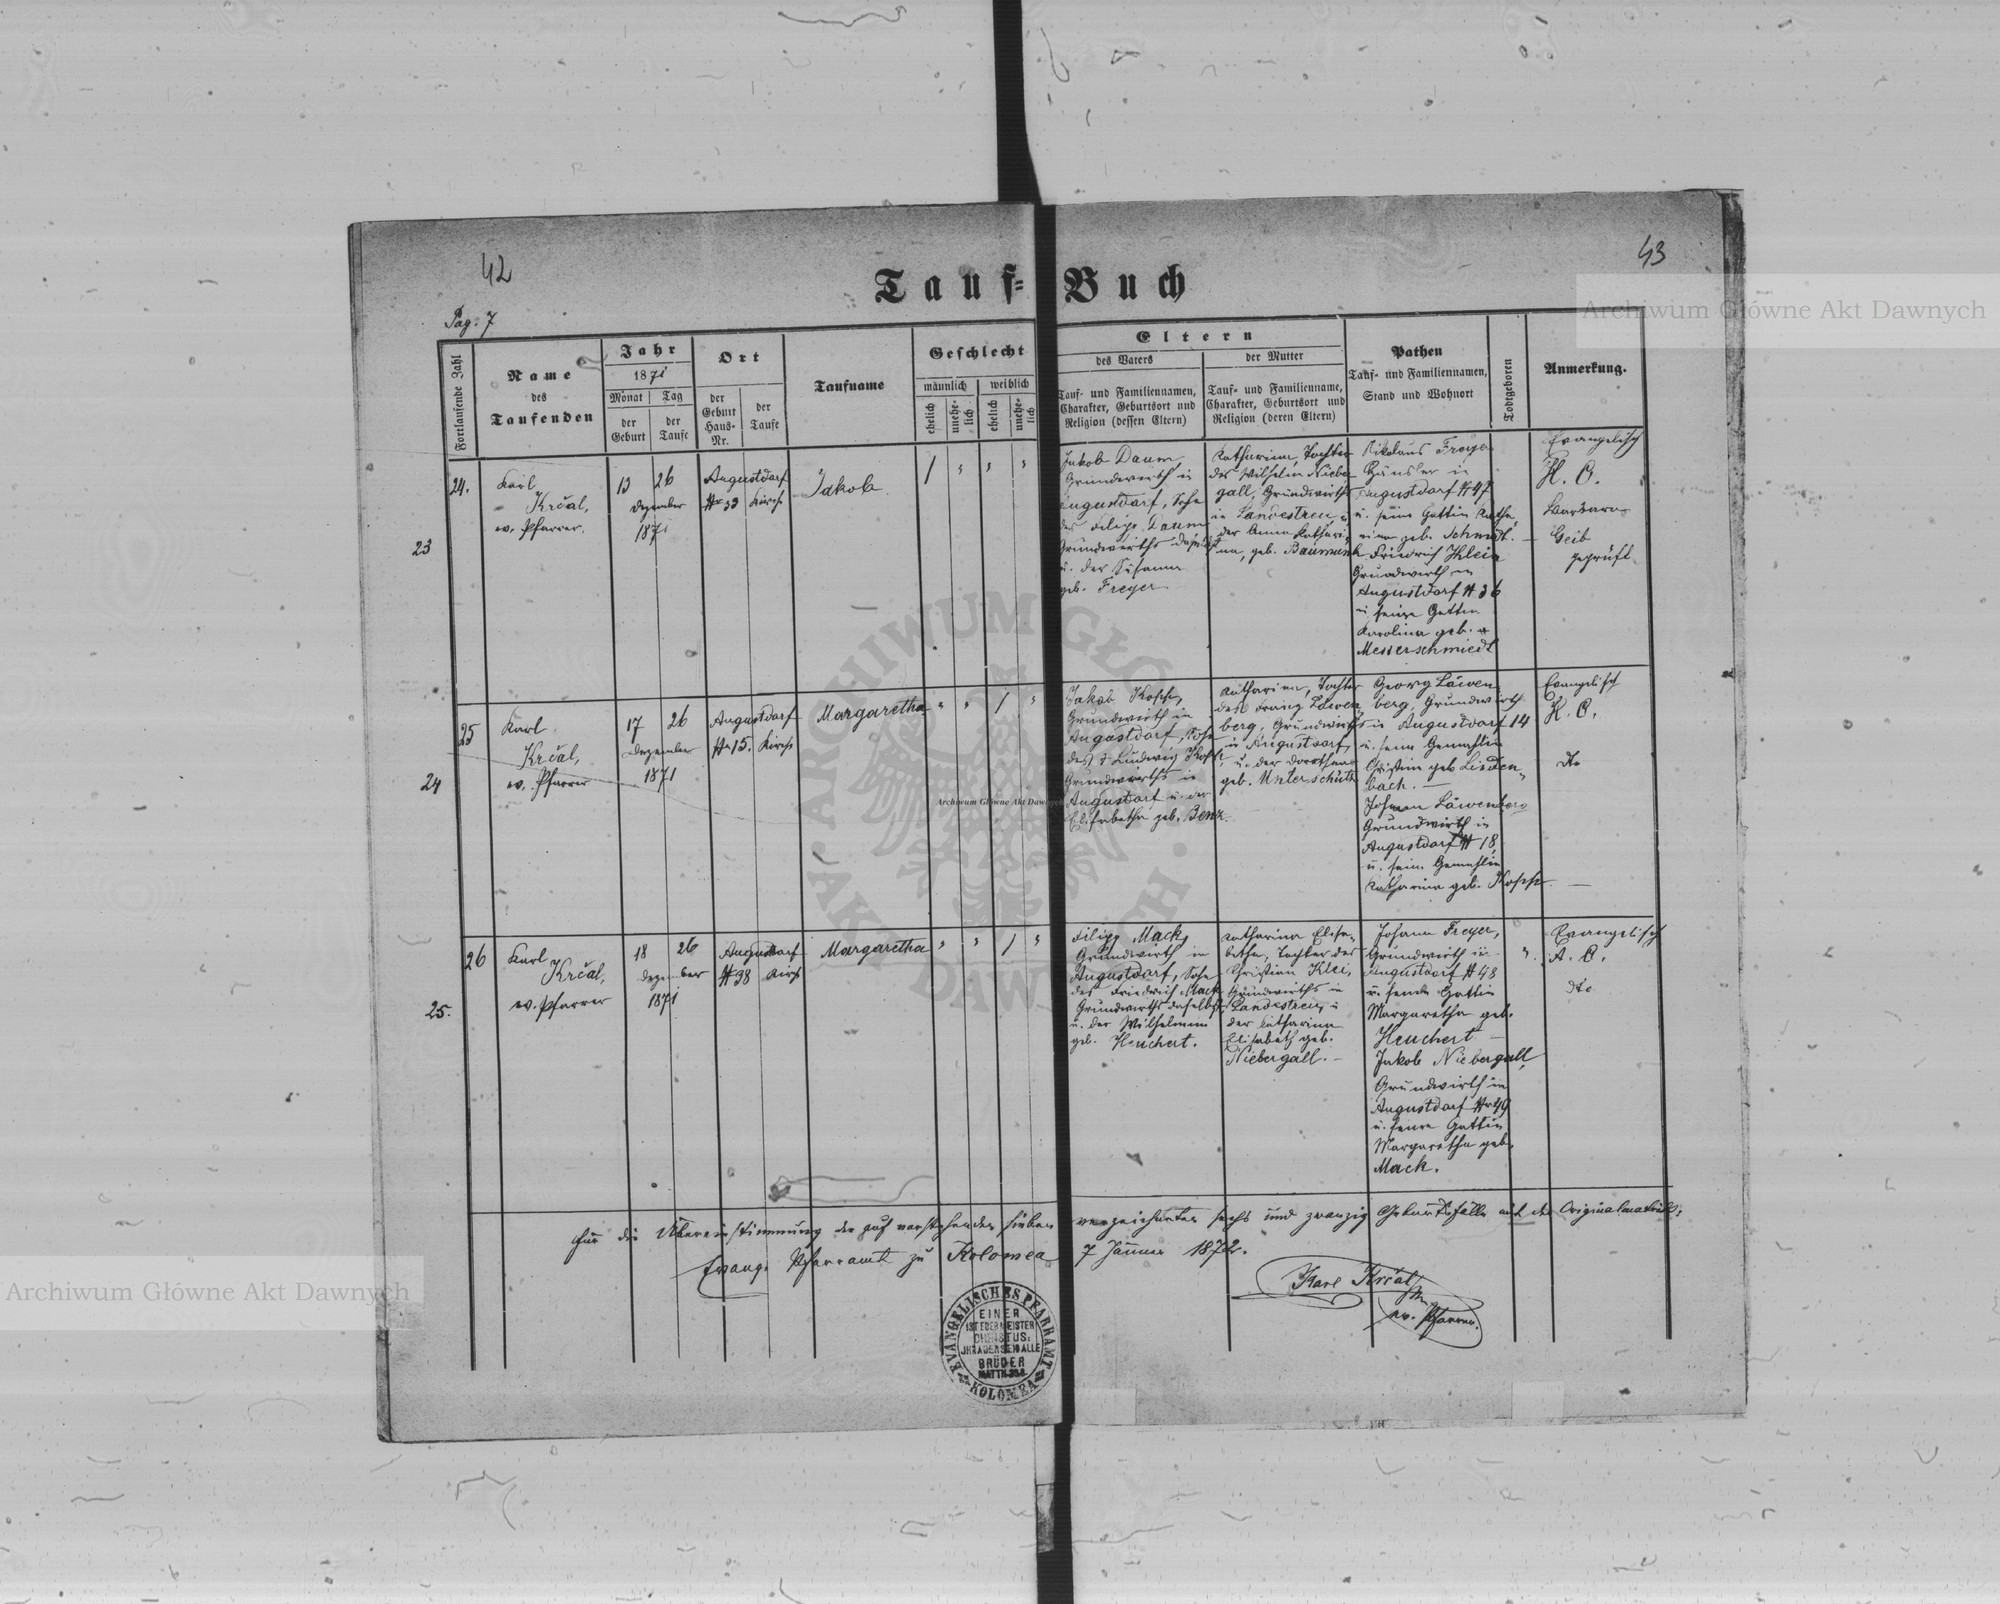 42
43
Tauf-Buch
Pag. 7
Fortlaufende Zahl
Name
des
Taufenden
Jahr
1871
Monat
der
Geburt
Tag
der
Taufe
Ort
der
Geburt
Haus-
Nr.
der
Taufe
Taufname
Geschlecht
männlich
weiblich
ehelich
unehe-
lich
ehelich
unehe-
lich
Eltern
des Vaters
Tauf- und Familiennamen,
Charakter, Geburtsort und
Religion (dessen Eltern)
der Mutter
Tauf- und Familienname,
Charakter, Geburtsort und
Religion (deren Eltern)
Pathen
Tauf- und Familiennamen,
Stand und Wohnort
Todtgeboren
Anmerkung.
23
24.
Karl
Krčal,
ev. Pfarrer.
13 26
Dezember
1871
Augustdorf
Kirche
Jakob
Jakob Daum
Grundwirth in
Augustdorf, Sohn
des Filipp Daum
Grundwirths daselbst
u. der Susanna
geb. Freyer
Katharina, Tochter
des Wilhelm Nieber
gall, Grundwirths
in Landestreu u.
der Anna Kathari-
na, geb. Baumunk
Nikolaus Freyer
Häusler in
Augustdorf # 47
u. seine Gattin Katha
rina geb. Schmidt. —
Friedrich Klein
Grundwirth in
Augustdorf # 36
u. seine Gattin
Karolina geb.
Messerschmiedt
Evangelisch
H. C.
Barbara
Geib
geprüft
24
25
Karl
Krčal,
ev. Pfarrer
17 26
Dezember
1871
Augustdorf
# 15. Kirche
Margaretha
Jakob Kopf,
Grundwirth in
Augustdorf, Sohn
des † Ludwig Kopf,
Grundwirths in
Augustdorf u. der
Elisabetha geb. Benz.
Katharina, Tochter
des Franz Löwen
berg, Grundwirths
in Augustdorf,
u. der Dorothea
geb. Unterschütz
Georg Löwen
berg, Grundwirth
in Augustdorf 14
u. seine Gemahlin
Christine geb. Linden-
bach. —
Johann Löwenberg
Grundwirth in
Augustdorf # 18
u. seine Gemahlin
Katharina geb. Kopf —
Evangelisch
H. C.
dto
25.
26
Karl
Krčal,
ev. Pfarrer
18 26
Dezember
1871
Augustdorf
# 38 Kirche
Margaretha
Filipp Mack,
Grundwirth in
Augustdorf, Sohn
des Friedrich Mack
Grundwirths daselbst
u. der Wilhelmine
geb. Heuchert.
Katharina Elisa-
betha, Tochter des
Christian Klei,
Grundwirths in
Landestreu, u.
der Katharina
Elisabeth geb.
Niebergall. —
Johann Freyer,
Grundwirth in
Augustdorf # 48
u. seine Gattin
Margaretha geb.
Heuchert —
Jakob Niebergall,
Grundwirth in
Augustdorf 49
u. seine Gattin
Margaretha geb.
Mack.
Evangelisch
A. C.
dto
Für die Übereinstimmung der auf vorstehenden sieben verzeichneten sechs und zwanzig Geburtsfälle mit der Originalmatrikel:
Evang. Pfarramt zu Kolomea 7 Jänner 1872.
Karl Krčal
ev. Pfarrer.
EVANGELISCHES PFARRAMT
ZU KOLOMEA
EINER
IST EUER MEISTER
CHRISTUS;
IHR ABER SEID ALLE
BRÜDER
MATTH. 23.8.
Archiwum Główne Akt Dawnych
Archiwum Główne Akt Dawnych
Archiwum Główne Akt Dawnych
ARCHIWUM GŁÓWNE AKT DAWNYCH